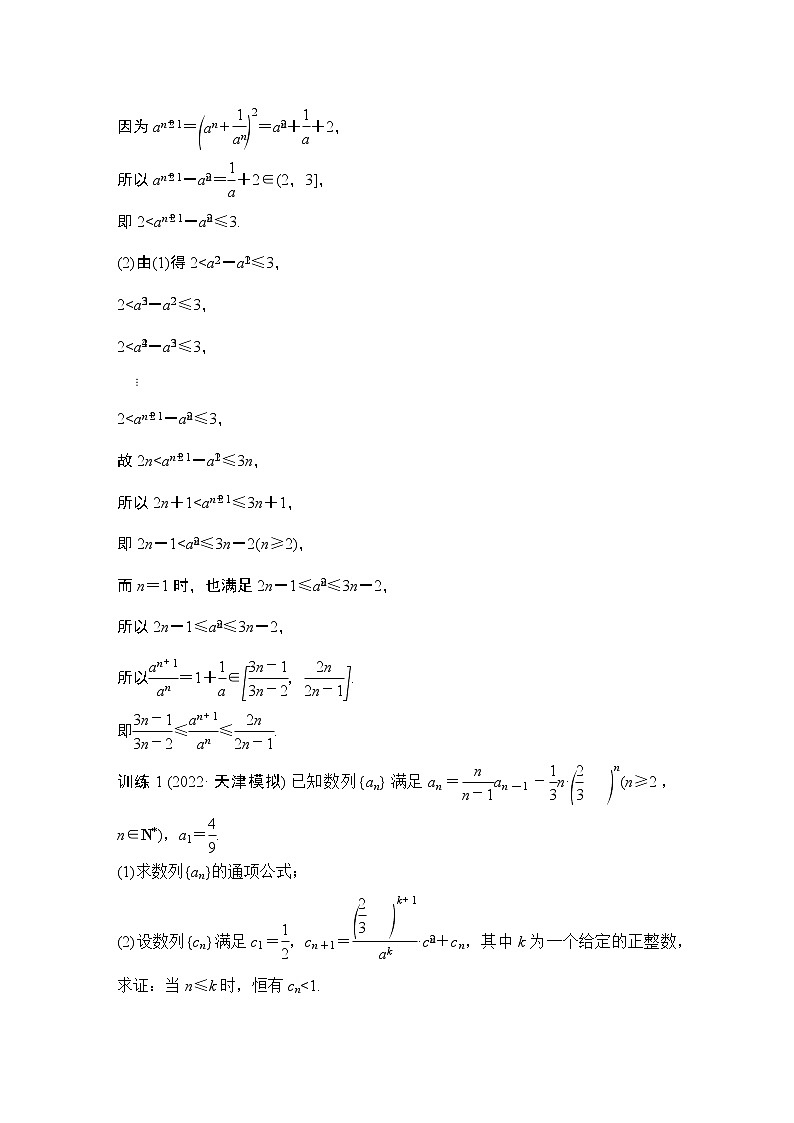 因为a_{n+1}^2=(a_n+1/a_n)^2=a_n^2+1/a+2,
所以a_{n+1}^2-a_n^2=1/a+2∈(2，3],
即2<a_{n+1}^2-a_n^2≤3.
(2)由(1)得2<a_2-a_1^2≤3,
2<a_3^2-a_2≤3,
2<a_4^2-a_3^2≤3,
⋮
2<a_{n+1}^2-a_n^2≤3,
故2n<a_{n+1}^2-a_1^2≤3n,
所以2n+1<a_{n+1}^2≤3n+1,
即2n-1<a_n^2≤3n-2(n≥2),
而n=1时，也满足2n-1≤a_n^2≤3n-2,
所以2n-1≤a_n^2≤3n-2,
所以a^{n+1}/a^n=1+1/a∈[(3n-1)/(3n-2)，2n/(2n-1)].
即(3n-1)/(3n-2)≤a^{n+1}/a^n≤2n/(2n-1).
训练1 (2022·天津模拟) 已知数列{a_n} 满足a_n=n/(n-1)a_{n-1}-1/3n·(2/3)^n(n≥2，
n∈N*)，a_1=4/9.
(1)求数列{a_n}的通项公式；
(2)设数列{c_n}满足c_1=1/2，c_{n+1}=(2/3)^{k+1}/a^k·c_n^2+c_n，其中k为一个给定的正整数，
求证：当n≤k时，恒有c_n<1.